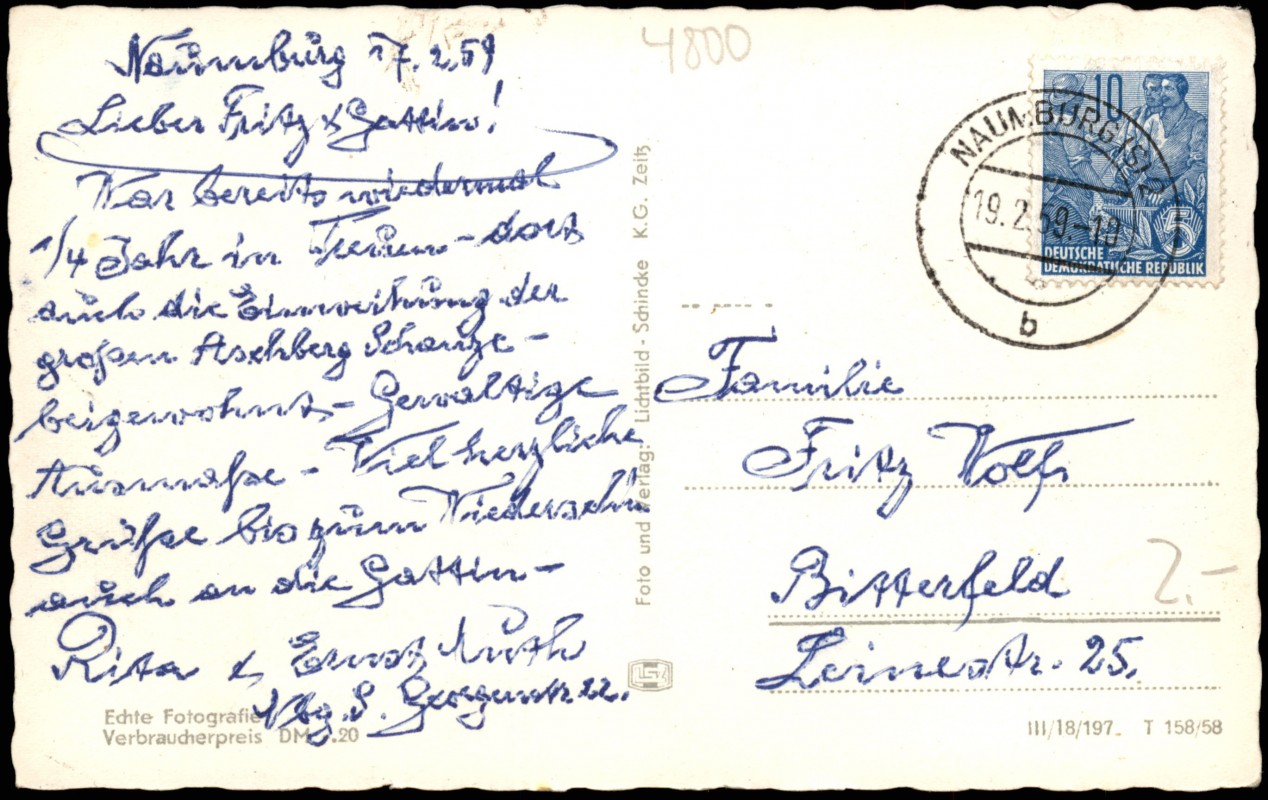 4800
Naumburg 17.2.59
Lieber Fritz & Gattin!
War bereits wiedermal
1/4 Jahr in dort
auch die Einweihung der
großen Aschberg Schanze –
beigewohnt – Gewaltige
Ausmaße – Viel herzliche
Grüße bis zum Wiedersehn
auch an die Gattin –
Rita & Ernst
Nbg. S. Georgenstr. 22.
Echte Fotografie
Verbraucherpreis DM .20
Foto und Verlag: Lichtbild-Schincke K.G. Zeitz
10
5
DEUTSCHE
DEMOKRATISCHE REPUBLIK
NAUMBURG (S) 2
19.2.59.-18
b
Familie
Fritz Wolf
Bitterfeld
2.-
Leinestr. 25.
III/18/197 T 158/58